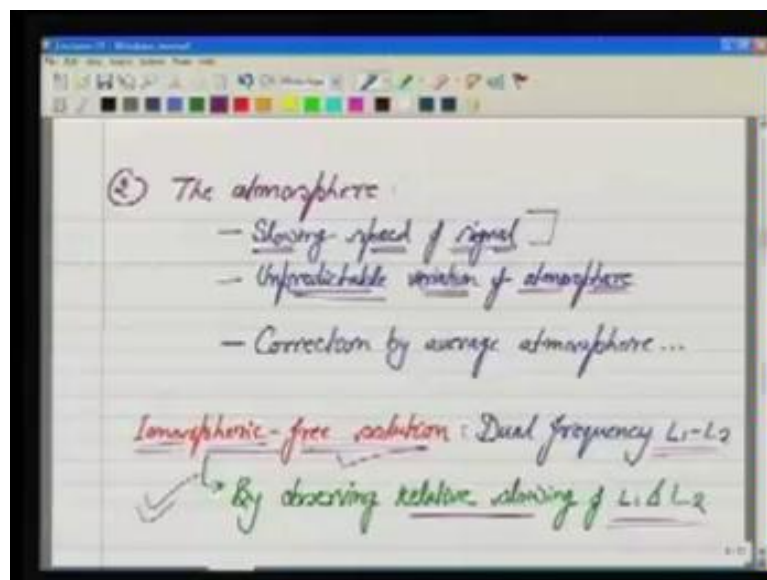 ② The atmosphere :
— Slowing speed of signal ]
— Unpredictable variation of atmosphere
— Correction by average atmosphere ...
Ionospheric-free solution : Dual frequency L1-L2
By observing relative slowing of L1 & L2